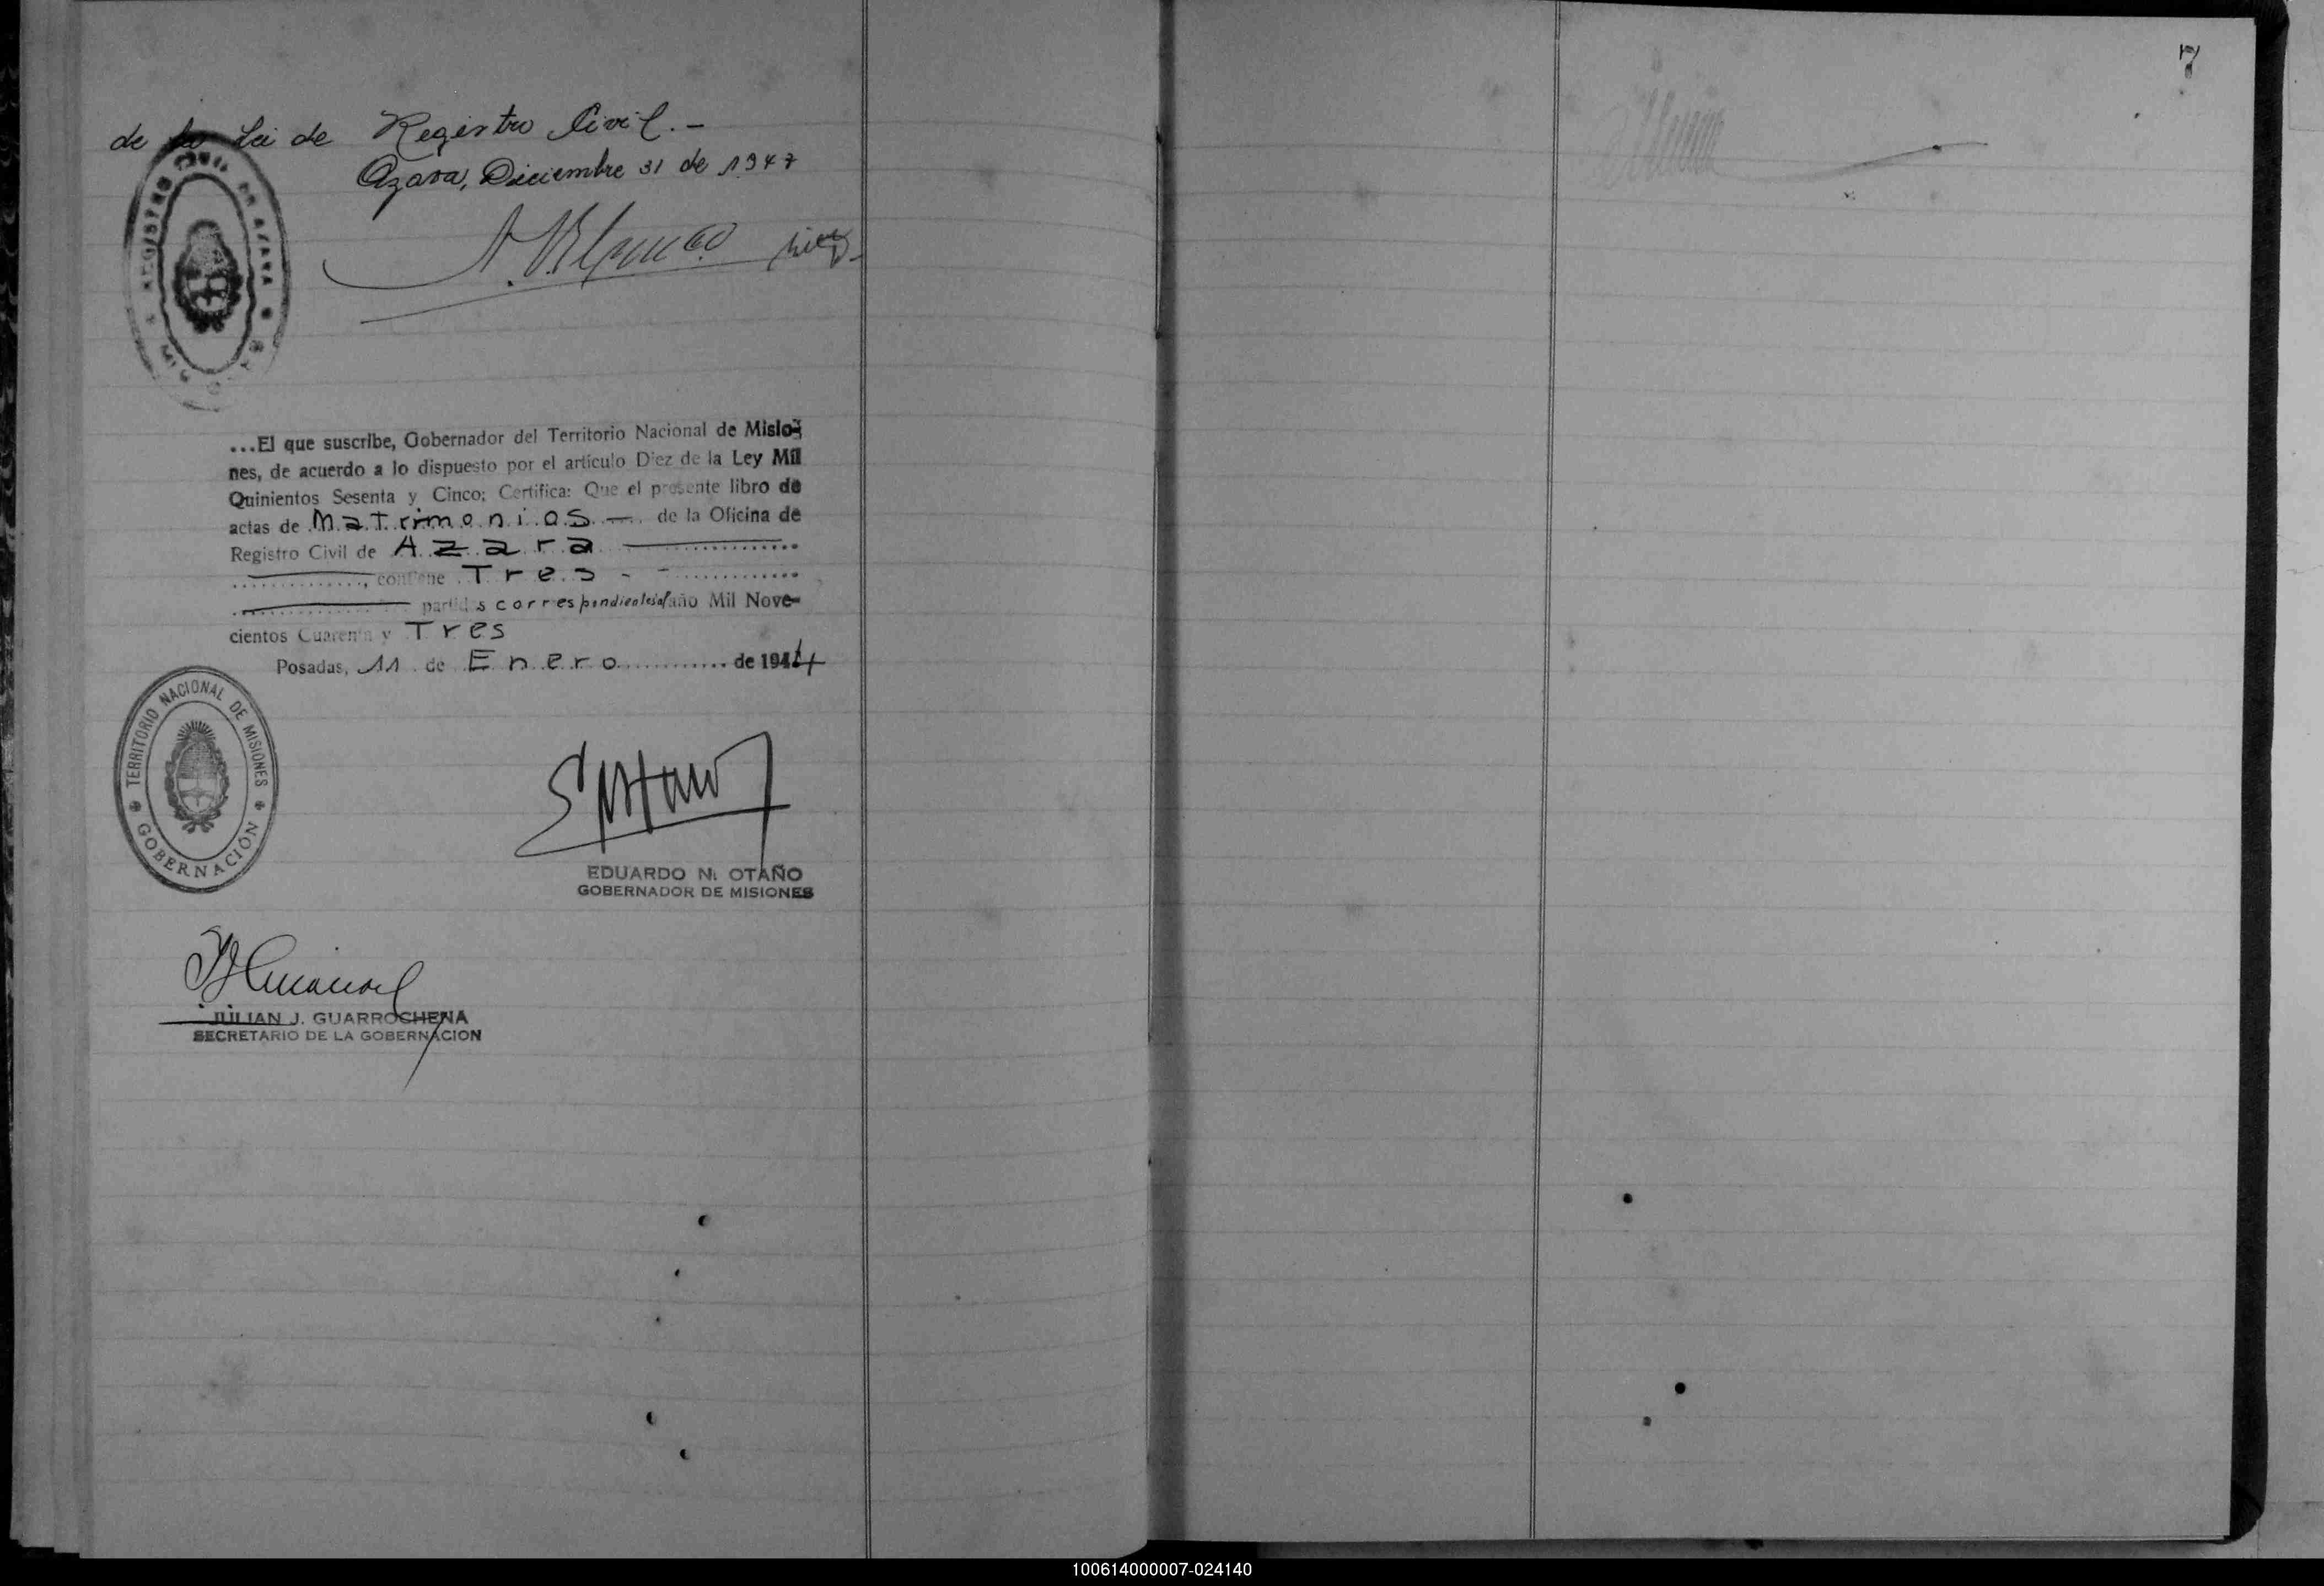 7
de la Lei de Registro Civil.-
Azara, Diciembre 31 de 1947
A. Blanco
REGISTRO CIVIL DE AZARA
...El que suscribe, Gobernador del Territorio Nacional de Misio-
nes, de acuerdo a lo dispuesto por el artículo Diez de la Ley Mil
Quinientos Sesenta y Cinco; Certifica: Que el presente libro de
actas de Matrimonios — de la Oficina de
Registro Civil de Azara
, contiene Tres - -
partidas correspondientes al año Mil Nove-
cientos Cuarenta y Tres
Posadas, 11 de Enero de 1944
TERRITORIO NACIONAL DE MISIONES
GOBERNACIÓN
EDUARDO N. OTAÑO
GOBERNADOR DE MISIONES
JULIAN J. GUARROCHENA
SECRETARIO DE LA GOBERNACION
100614000007-024140